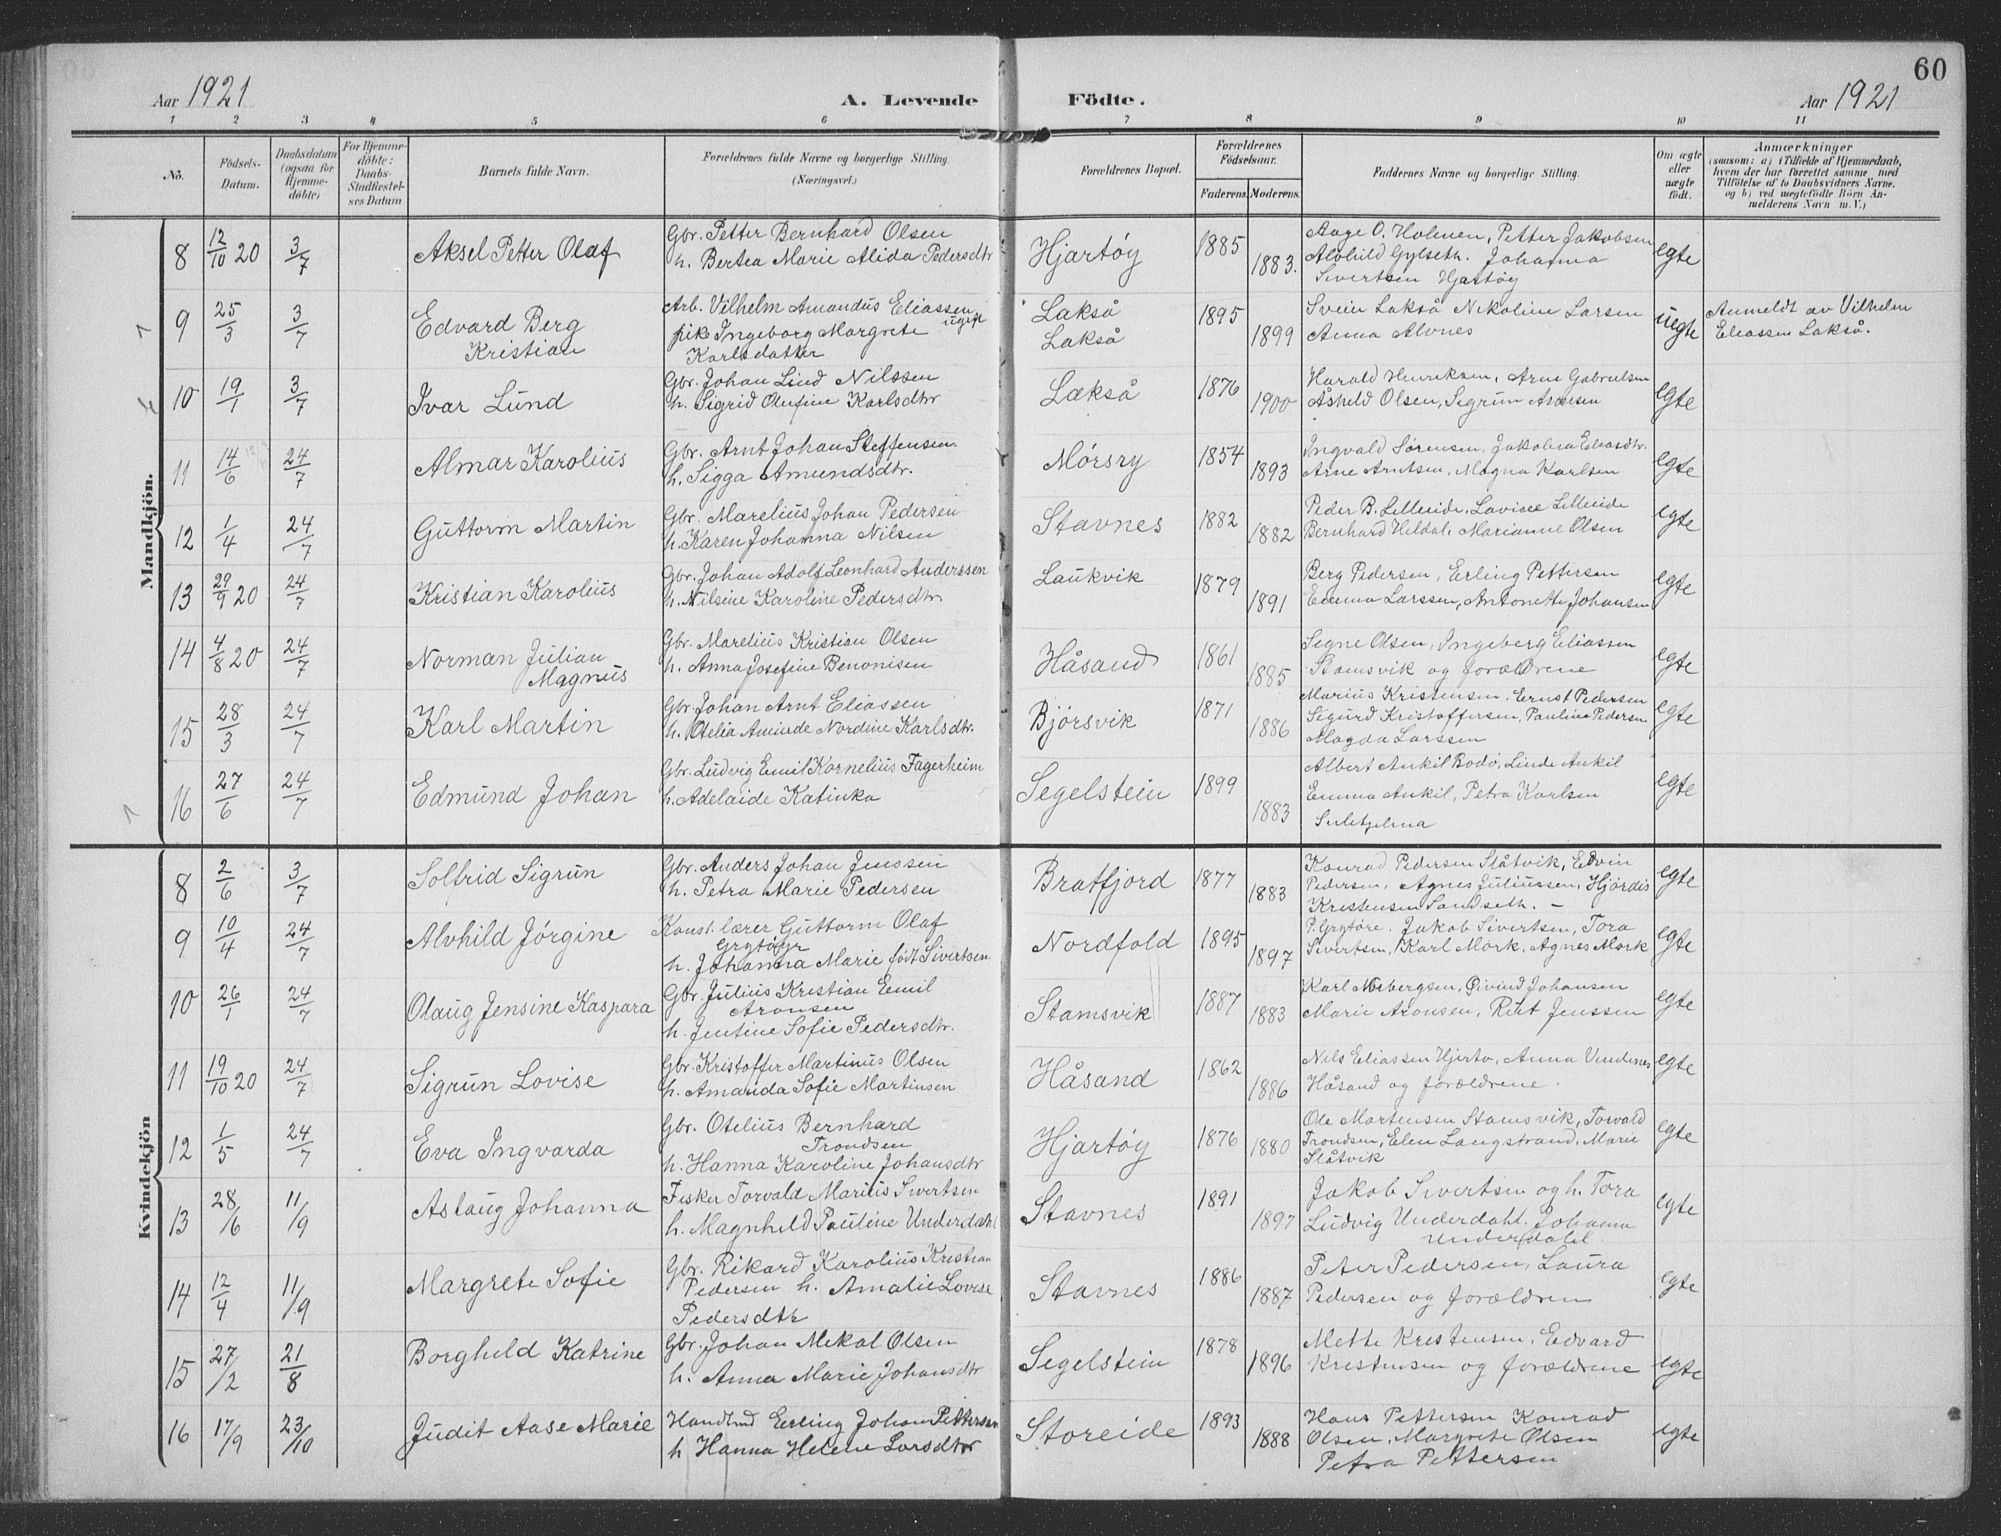 60
Aar 1921 A. Levende Födte. Aar 1921
1 2 3 4 5 6 7 8 9 10 11
No. Födsels-Datum. Daabsdatum (ogsaa for Hjemmedöbte) For Hjemmedöbte: Daabs-Stadfæstelses Datum Barnets fulde Navn. Forældrenes fulde Navne og borgerlige Stilling. (Næringsvei.) Forældrenes Bopæl. Forældrenes Födselsaar. Faderens. Moderens. Faddernes Navne og borgerlige Stilling. Om ægte eller uægte födt. Anmærkninger (saasom: a) i Tilfælde af Hjemmedaab, hvem der har forrettet samme, med Tilföielse af to Daabsvidners Navne, og b) ved uægtefödte Börn Anmelderens Navn m. V.)
Mandkjön.
8 12/10 20 3/7 Aksel Petter Olaf Gbr. Petter Bernhard Olsen Hjartöy 1885 Aage O. Holmen, Petter Jakobsen egte
h. Bertea Marie Alida Pedersdtr 1883. Alvhild Gylseth. Johanna
Sivertsen Hjartöy
9 25/3 3/7 Edvard Berg Arb. Vilhelm Amandus Eliassen Lakså 1895 Svein Lakså Nikoline Larsen uegte Anmeldt av Vilhelm
Kristian pike Ingeborg Margrete ugift Lakså 1899 Anna Alvnes Eliassen Lakså.
Karlsdatter
10 19/1 3/7 Ivar Lund Gbr. Johan Lind Nilssen Lakså 1876 Harald Henriksen, Arne Gabrielsen egte
h. Sigrid Olufine Karlsdtr 1900 Åshild Olsen, Sigrun Aronsen
11 14/6 24/7 Almar Karolius Gbr. Arnt Johan Steffensen. Mörsry 1854 Ingvald Sörensen, Jakobea Eliasdtr. egte
h. Sigga Amundsdtr. 1893 Arne Arntsen, Magna Karlsen
12 1/4 24/7 Guttorm Martin Gbr. Marelius Johan Pedersen Stavnes 1882 Peder B. Lilleeide, Lovise Lilleeide egte
h. Karen Johanna Nilsen 1882 Bernhard Hildal, Marianne Olsen
13 29/9 20 24/7 Kristian Karolius Gbr. Johan Adolf Leonhard Anderssen Laukvik 1879 Berg Pedersen, Erling Pettersen egte
h. Nilsine Karoline Pedersdtr 1891 Emma Larssen, Antonette Johansen
14 4/8 20 24/7 Norman Julian Gbr. Marelius Kristian Olsen Håsand 1861 Signe Olsen, Ingeberg Eliassen egte
Magnus h. Anna Josefine Benonisen 1885 Stamsvik og forældrene
15 28/3 24/7 Karl Martin Gbr. Johan Arnt Eliassen Björsvik 1871 Marius Kristensen. Ernst Pedersen egte
h. Otelia Aminde Nordine Karlsdtr. 1886 Sigurd Kristoffersen, Pauline Pedersen
Magda Larssen
16 27/6 24/7 Edmund Johan Gbr. Ludvig Emil Kornelius Fagerheim Segelstein 1899 Albert Ankil Bodö, Linde Ankil egte
h. Adelaide Katinka 1883 Emma Ankil, Petra Karlsen
Sulitjelma
Kvindekjön
8 2/6 3/7 Solfrid Sigrun Gbr. Anders Johan Jenssen Bratfjord 1877 Konrad Pedersen Slåtvik, Edvin egte
h. Petra Marie Pedersen 1883 Pedersen, Agnes Juliussen, Hjördis
Kristensen Sandseth. —
9 10/4 24/7 Alvhild Jörgine Konst. lærer Guttorm Olaf Nordfold 1895 P. Grytöre. Jakob Sivertsen, Tora egte
Grytöyr
h. Johanna Marie födt Sivertsen 1897 Sivertsen, Karl Mork, Agnes Mork
10 26/1 24/7 Olaug Jensine Kaspara Gbr. Julius Kristian Emil Stamsvik 1887 Karl Norbergsen, Öivind Johansen egte
Aronsen 1883 Marie Aronsen, Rut Jenssen
h. Jentine Sofie Pedersdtr.
11 19/10 20 24/7 Sigrun Lovise Gbr. Kristoffer Martinus Olsen Håsand 1862 Nils Eliassen Hjertö, Anna Vendenes egte
h. Amanda Sofie Martinsen 1886 Håsand og forældrene.
12 1/5 24/7 Eva Ingvarda Gbr. Otelius Bernhard Hjartöy 1876 Ole Martensen Stamsvik, Torvald egte
Trondsen 1880 Trondsen, Elen Langstrand, Marie
h. Hanna Karoline Johansdtr Slåtvik
13 28/6 11/9 Aslaug Johanna Fisker Torvald Marius Sivertsen Stavnes 1891 Jakob Sivertsen og h. Tora egte
h. Magnhild Pauline Underdahl 1897 Ludvig Underdahl. Johanna
Underdahl.
14 12/4 11/9 Margrete Sofie Gbr. Rikard Karolius Kristian Stavnes 1886 Peter Pedersen, Laura egte
Pedersen h. Amalie Lovise 1887 Pedersen og forældren
Pedersdtr
15 27/2 21/8 Borghild Katrine Gbr. Johan Mekal Olsen Segelstein 1878 Mette Kristensen, Edvard
h. Anna Marie Johansdtr 1896 Kristensen og forældrene egte
16 17/9 23/10 Judit Aase Marie Handlmd Erling Johan Pettersen Storeide 1893 Hans Pettersen Konrad
h Hanna Helene Larsdtr 1888 Olsen, Margrete Olsen egte
Petra Pettersen